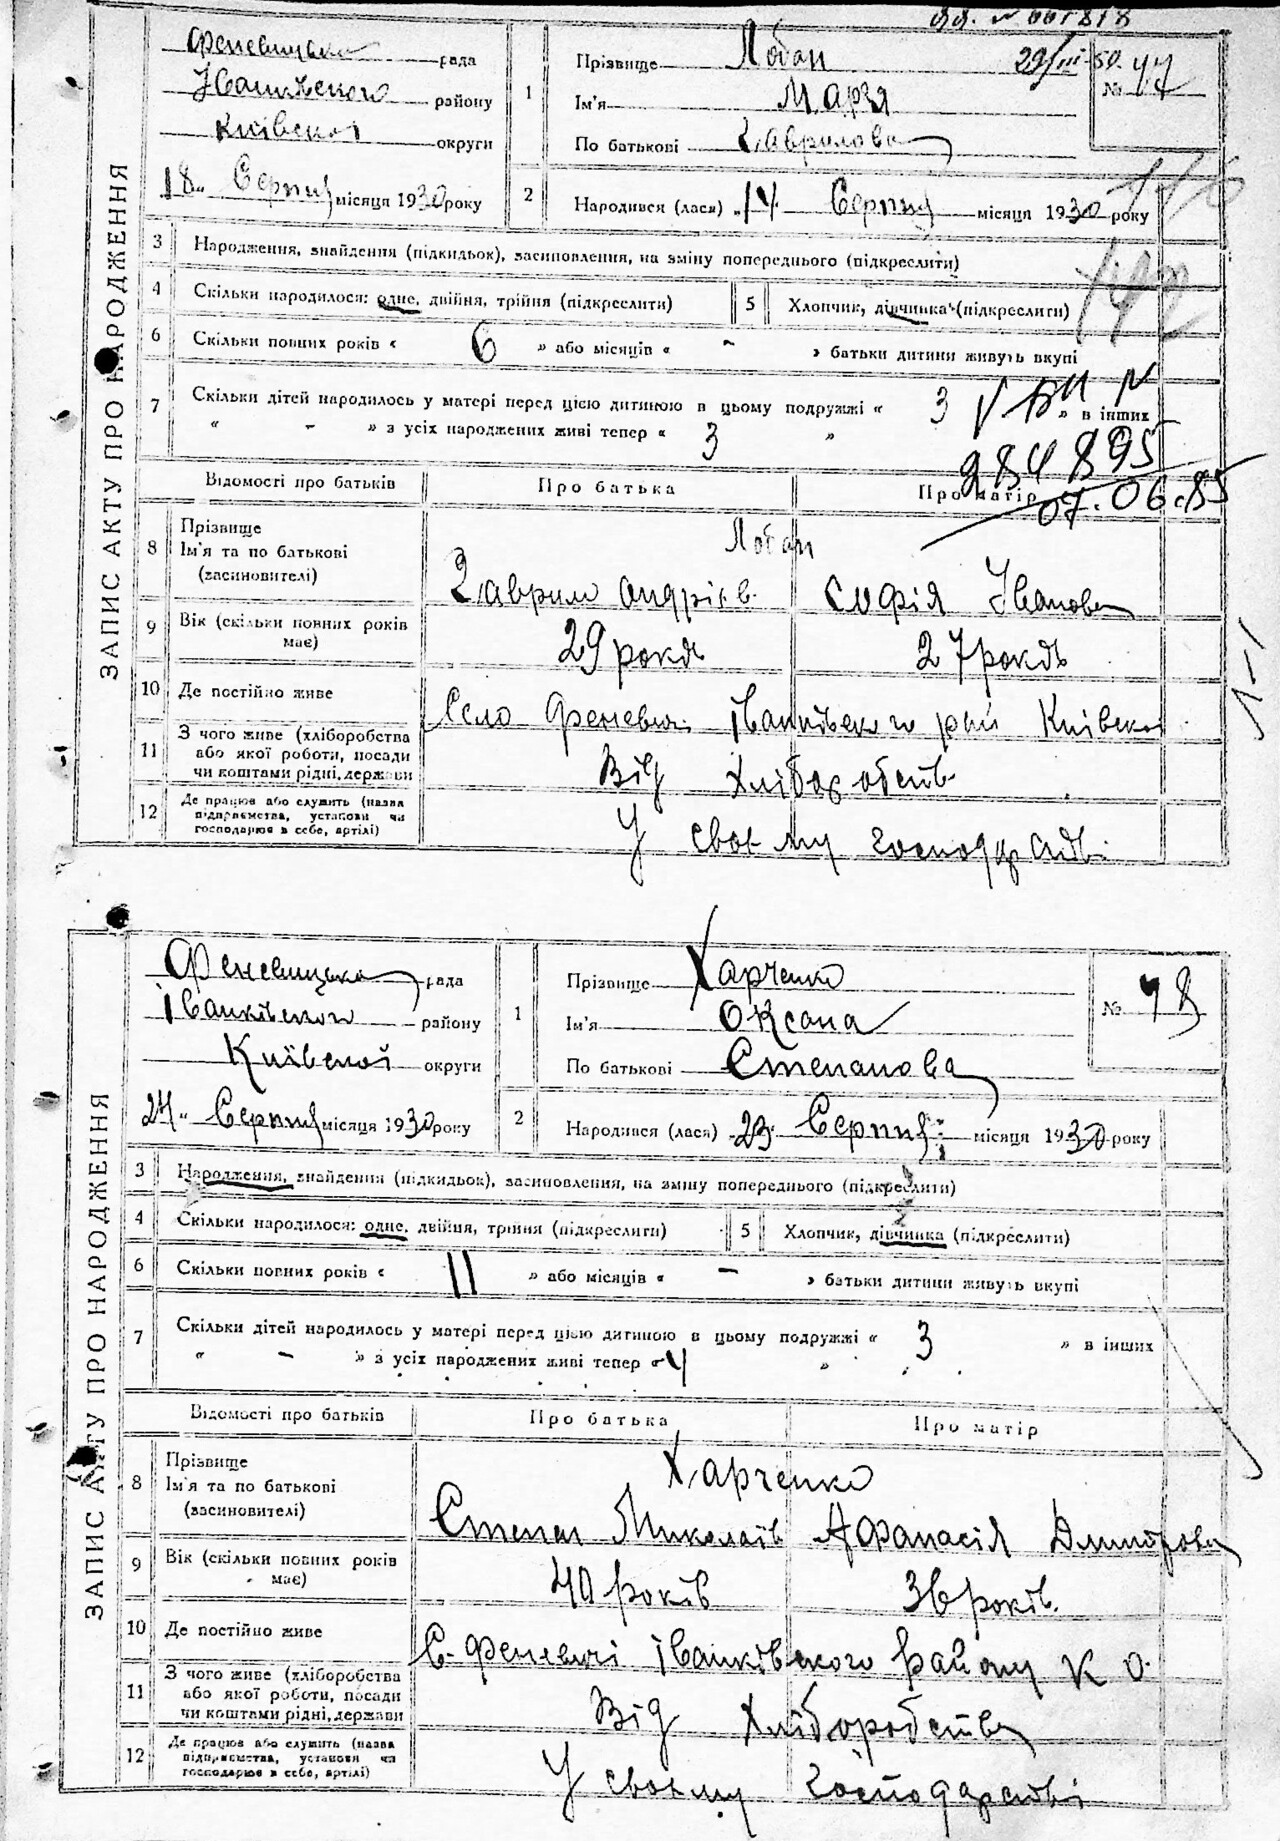 ЗАПИС АКТУ ПРО НАРОДЖЕННЯ
Феневицька рада
Іванківского району
Київської округи
18 Серпня місяця 1930 року
1 Прізвище Лобан
Ім'я Марія
По батькові Гаврилова
22/III-50
№ 77
176
2 Народився (лася) 14 Серпня місяця 1930 року
3 Народження, знайдення (підкидьок), засиновлення, на зміну попереднього (підкреслити)
4 Скільки народилося: одне, двійня, трійня (підкреслити) 5 Хлопчик, дівчинка (підкреслити)
6 Скільки повних років « 6 » або місяців « - » батьки дитини живуть вкупі
7 Скільки дітей народилось у матері перед цією дитиною в цьому подружжі « 3 » в інших
« - » з усіх народжених живі тепер « 3 »
984895
07.06.85
Відомості про батьків Про батька Про матір
8 Прізвище
Ім'я та по батькові
(засиновителі)
Лобан
Гаврило Андріїв. Софія Іванова
9 Вік (скільки повних років має) 29 років 27 років
10 Де постійно живе Село Феневичі Іванківского рай Київської
11 З чого живе (хліборобства
або якої роботи, посади
чи коштами рідні, держави
Від Хліборобств
12 Де працює або служить (назва
підприємства, установи чи
господарює в себе, артілі)
У своєму господарстві
ЗАПИС АКТУ ПРО НАРОДЖЕННЯ
Феневицька рада
Іванківского району
Київської округи
24 Серпня місяця 1930 року
1 Прізвище Харченко
Ім'я Оксана
По батькові Степанова
№ 78
2 Народився (лася) 23 Серпня місяця 1930 року
3 Народження, знайдення (підкидьок), засиновлення, на зміну попереднього (підкреслити)
4 Скільки народилося: одне, двійня, трійня (підкреслити) 5 Хлопчик, дівчинка (підкреслити)
6 Скільки повних років « 11 » або місяців « - » батьки дитини живуть вкупі
7 Скільки дітей народилось у матері перед цією дитиною в цьому подружжі « 3 » в інших
« - » з усіх народжених живі тепер « 4 »
Відомості про батьків Про батька Про матір
8 Прізвище
Ім'я та по батькові
(засиновителі)
Харченко
Степан Миколаїв Афанасія Дмитрова
9 Вік (скільки повних років має) 40 років 36 років.
10 Де постійно живе С. Феневичі Іванківского Району К О.
11 З чого живе (хліборобства
або якої роботи, посади
чи коштами рідні, держави
Від Хліборобства
12 Де працює або служить (назва
підприємства, установи чи
господарює в себе, артілі)
У своєму господарстві